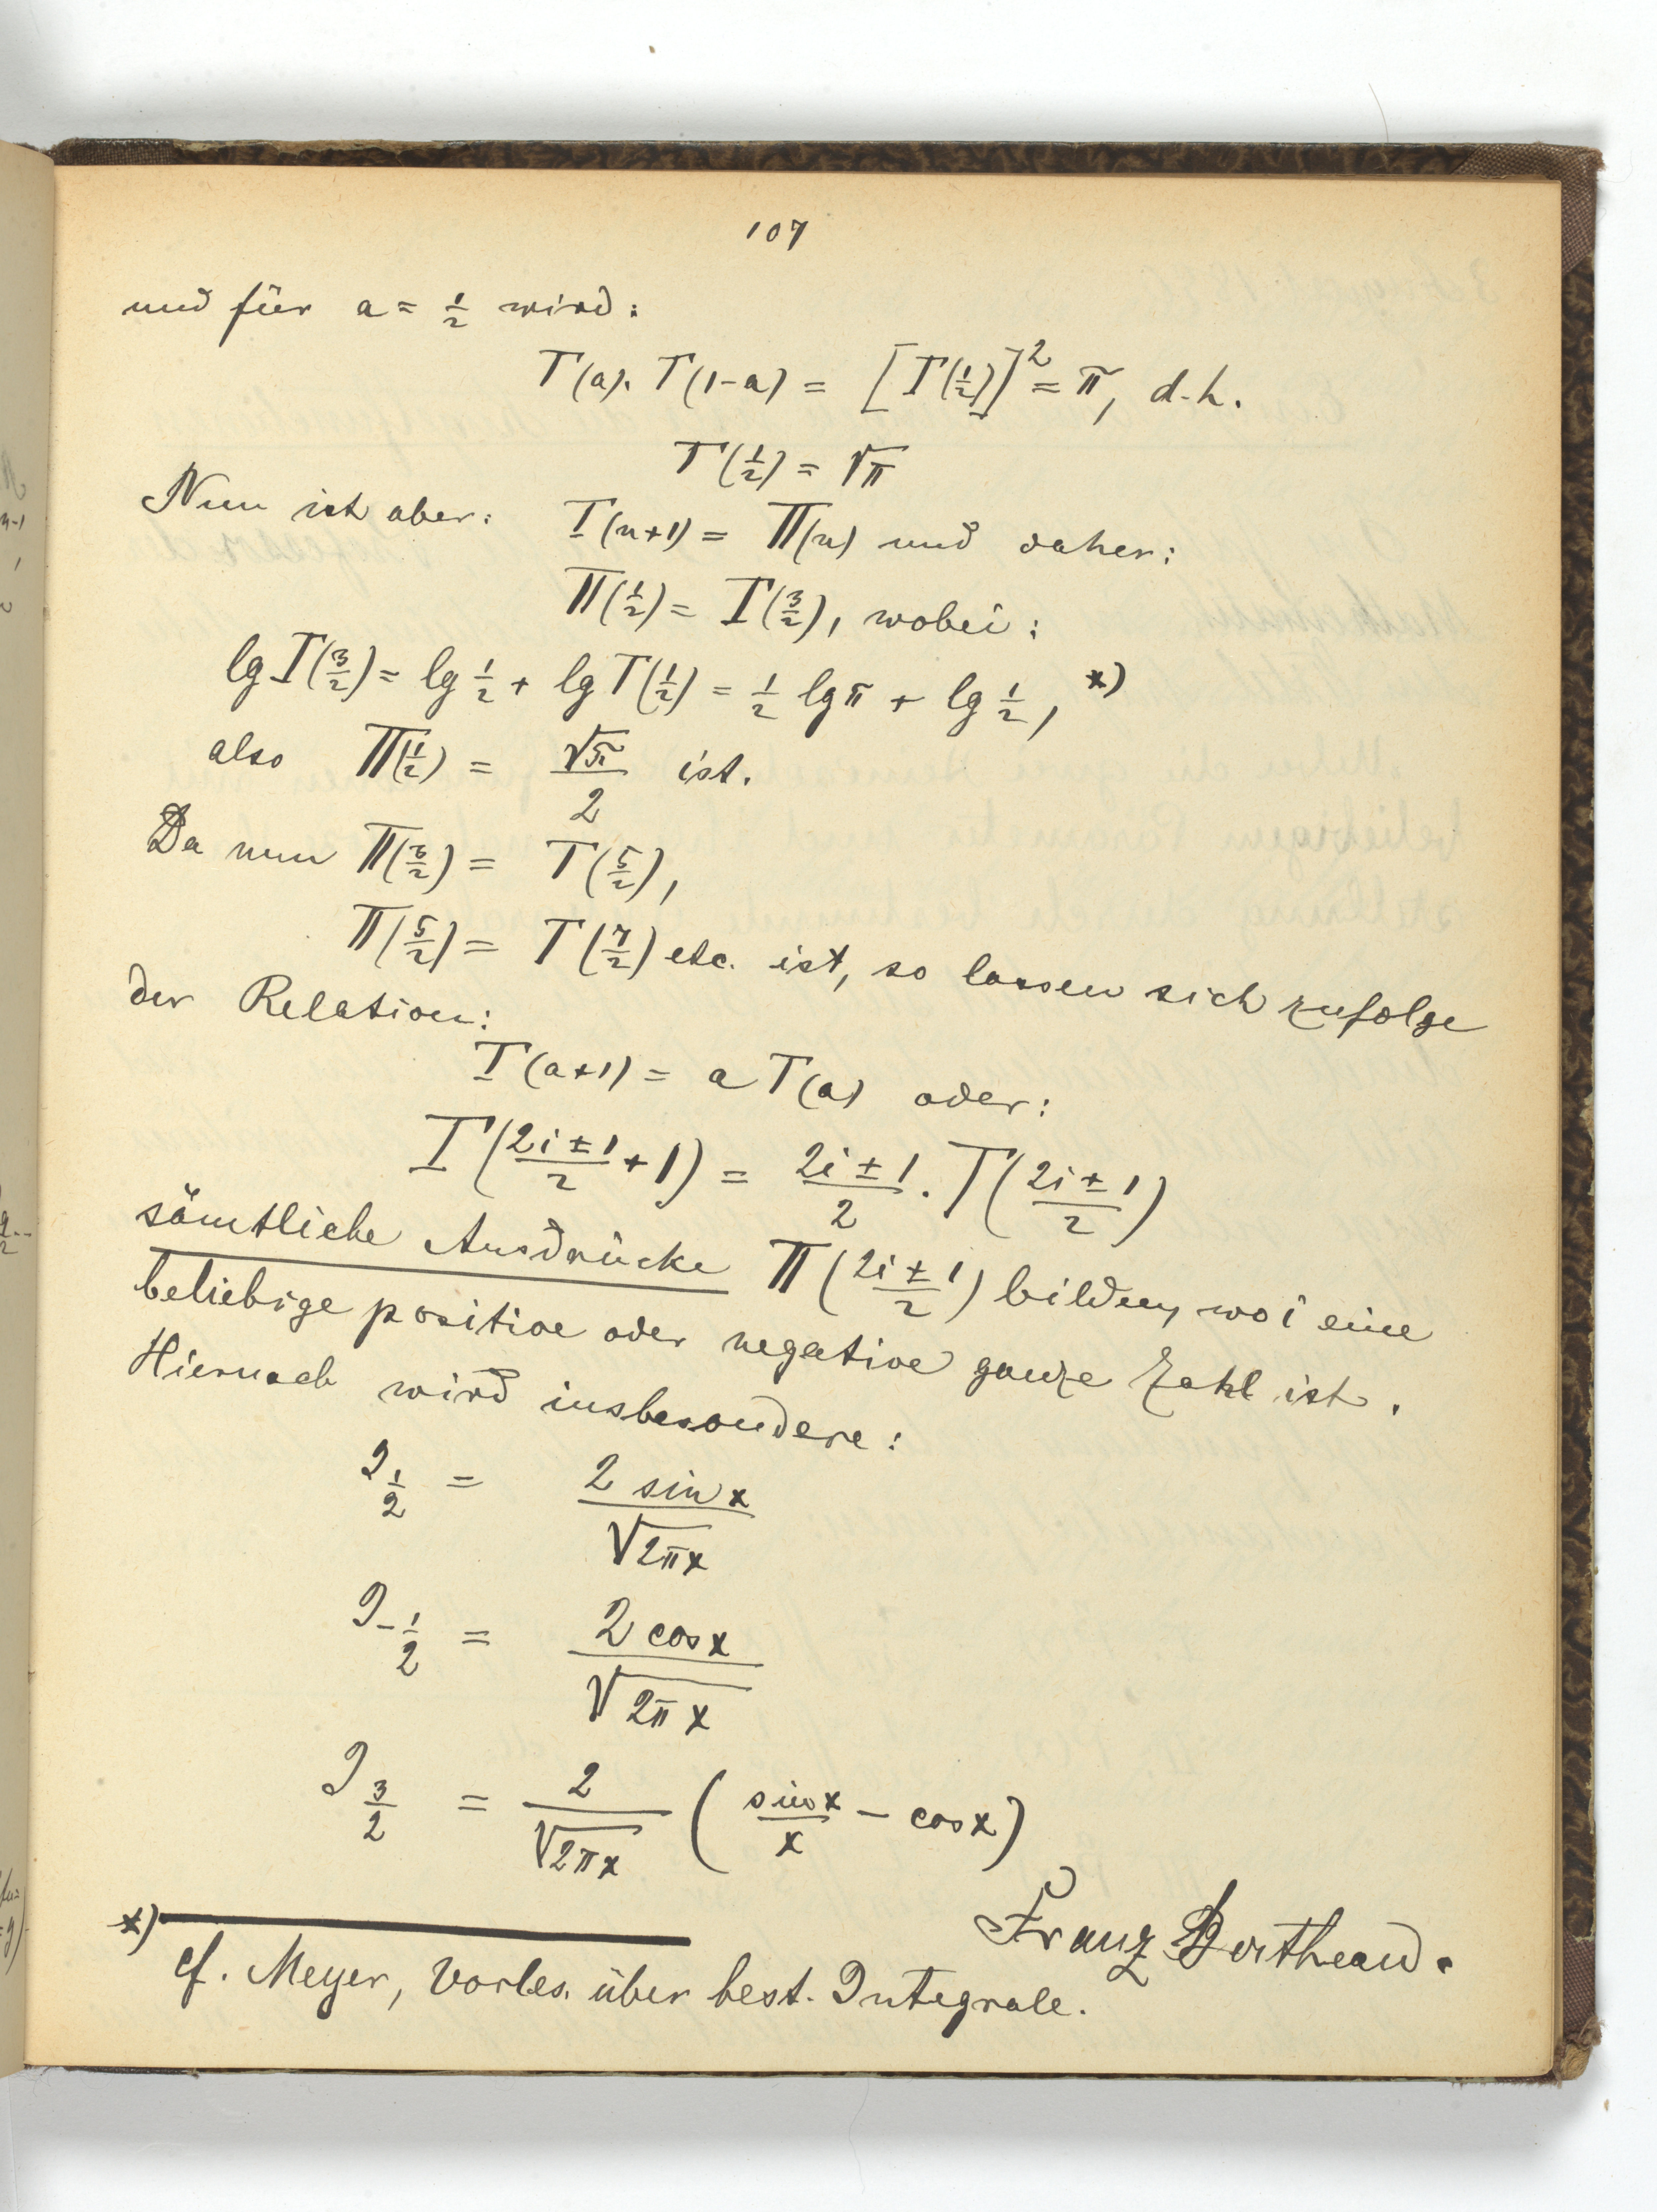 107
und für a = 1/2 wird:
Γ(a). Γ(1-a) = [Γ(1/2)]² = π, d.h.
Γ(1/2) = √π
Nun ist aber: Γ(n+1) = Π(n) und daher:
Π(1/2) = Γ(3/2), wobei:
lg Γ(3/2) = lg 1/2 + lg Γ(1/2) = 1/2 lg π + lg 1/2, *)
also Π(1/2) = √π/2 ist.
Da nun Π(3/2) = Γ(5/2),
Π(5/2) = Γ(7/2) etc. ist, so lassen sich zufolge
der Relation:
Γ(a+1) = a Γ(a) oder:
Γ((2i±1)/2 + 1) = (2i±1)/2 . Γ((2i±1)/2)
sämtliche Ausdrücke Π((2i±1)/2) bilden, wo i eine
beliebige positive oder negative ganze Zahl ist.
Hiernach wird insbesondere:
J_{1/2} = 2 sin x / √(2πx)
J_{-1/2} = 2 cos x / √(2πx)
J_{3/2} = 2/√(2πx) (sin x / x - cos x)
Franz Bertheau.
*) cf. Meyer, Vorles. über best. Integrale.